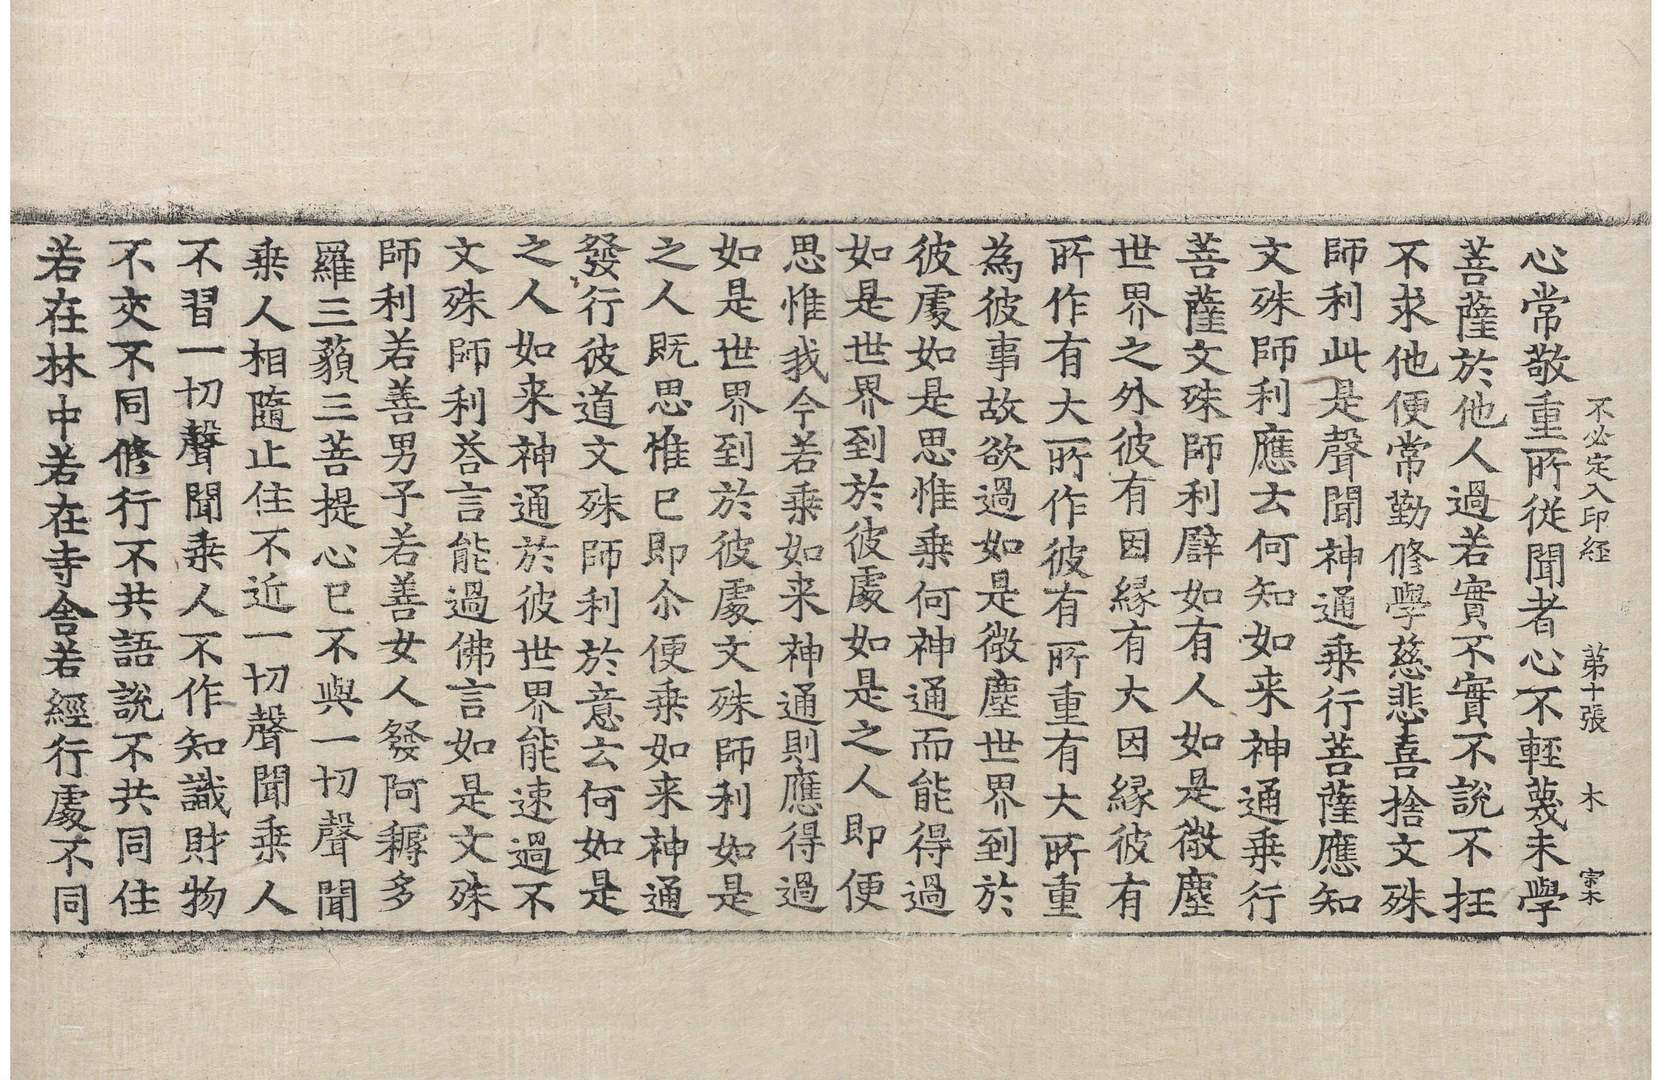 不必定入印経 第十張 木 宋木
心常敬重所從聞者心不輕蔑未學
菩薩於他人過若實不實不說不抂
不求他便常勤修學慈悲喜捨文殊
師利此是聲聞神通乗行菩薩應知
文殊師利應云何知如来神通乗行
菩薩文殊師利譬如有人如是微塵
世界之外彼有因縁有大因縁彼有
所作有大所作彼有所重有大所重
為彼事故欲過如是微塵世界到於
彼處如是思惟乗何神通而能得過
如是世界到於彼處如是之人即便
思惟我今若乗如来神通則應得過
如是世界到於彼處文殊師利如是
之人既思惟已即尒便乗如来神通
發行彼道文殊師利於意云何如是
之人如来神通於彼世界能速過不
文殊師利荅言能過佛言如是文殊
師利若善男子若善女人發阿耨多
羅三藐三菩提心已不與一切聲聞
乗人相隨止住不近一切聲聞乗人
不習一切聲聞乗人不作知識財物
不交不同修行不共語說不共同住
若在林中若在寺舎若經行處不同